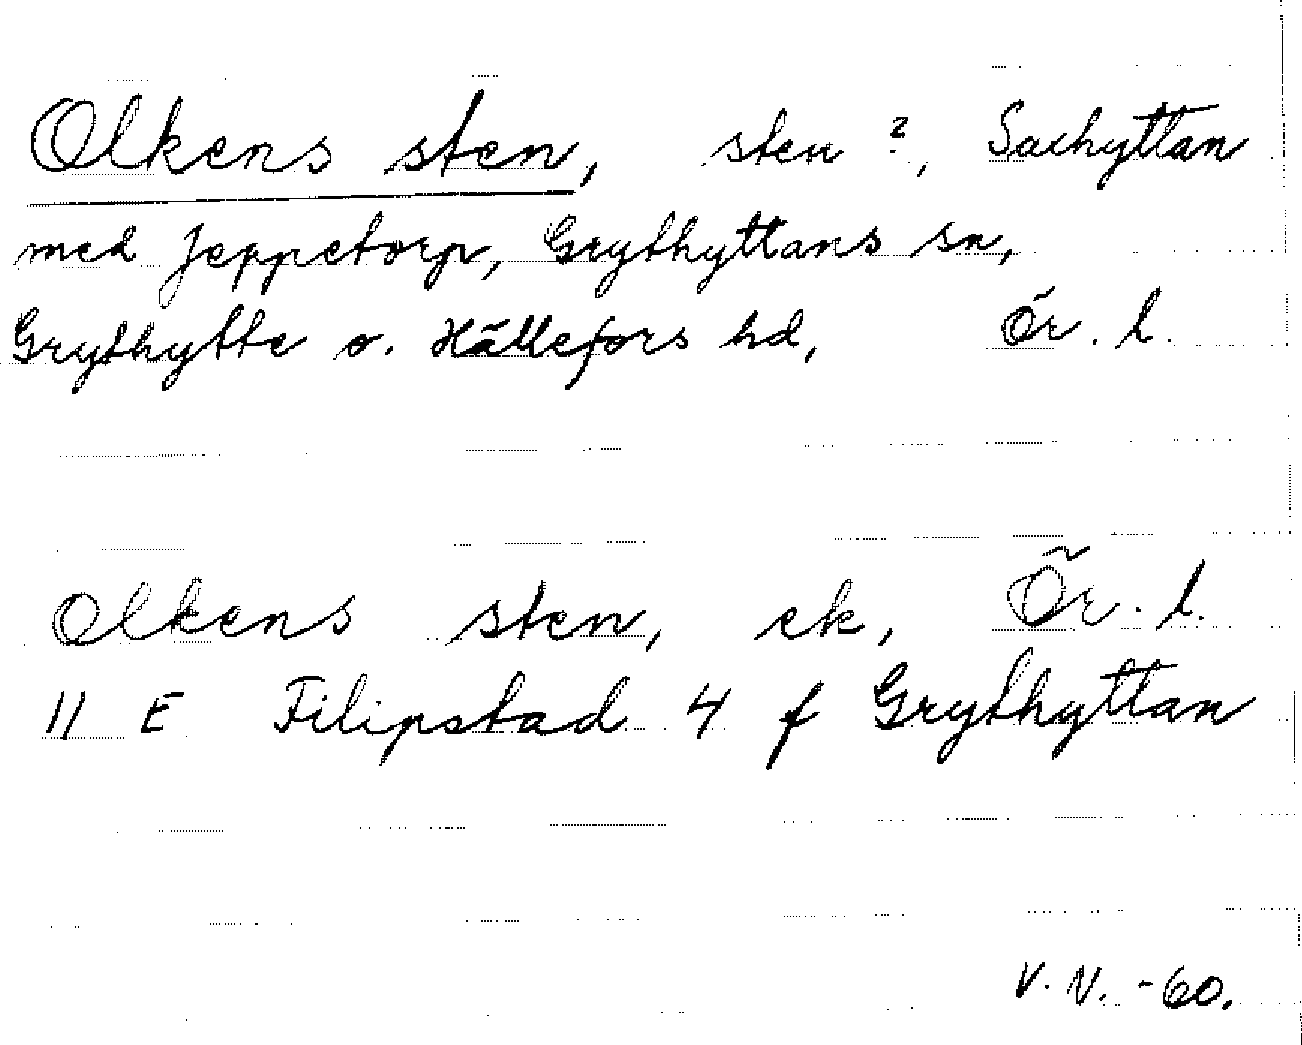 Olkens sten, sten ?, Saxhyttan
med Jeppetorp, Grythyttans sn,
Grythytte o. Hällefors hd, Ör. l.
Olkens sten, ek, Ör. l.
11 E Filipstad 4 f Grythyttan
V. N. -60.